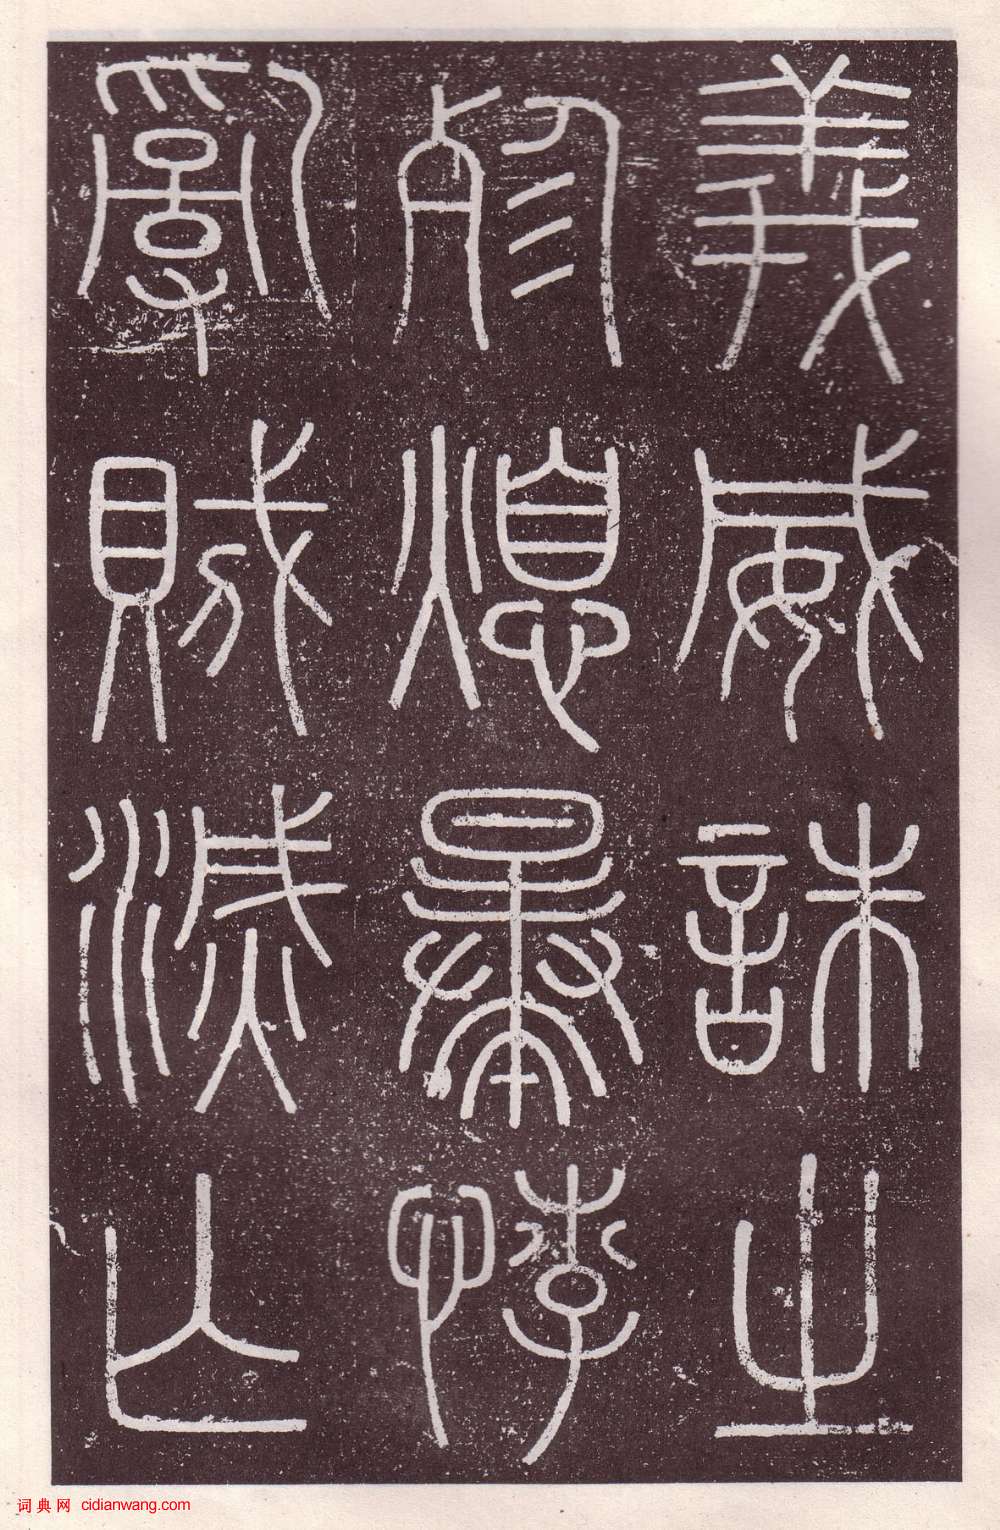 義威誅之
殄熄暴悖
亂賊滅亡
词典网 cidianwang.com